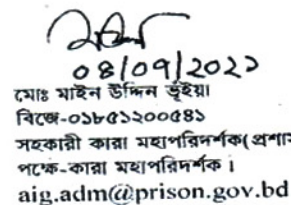 ০৪/০৭/২০২১
মোঃ মাইন উদ্দিন ভূঁইয়া
বিজে-০১৮৫১২০০৫৪১
সহকারী কারা মহাপরিদর্শক(প্রশাস
পক্ষে-কারা মহাপরিদর্শক।
aig.adm@prison.gov.bd